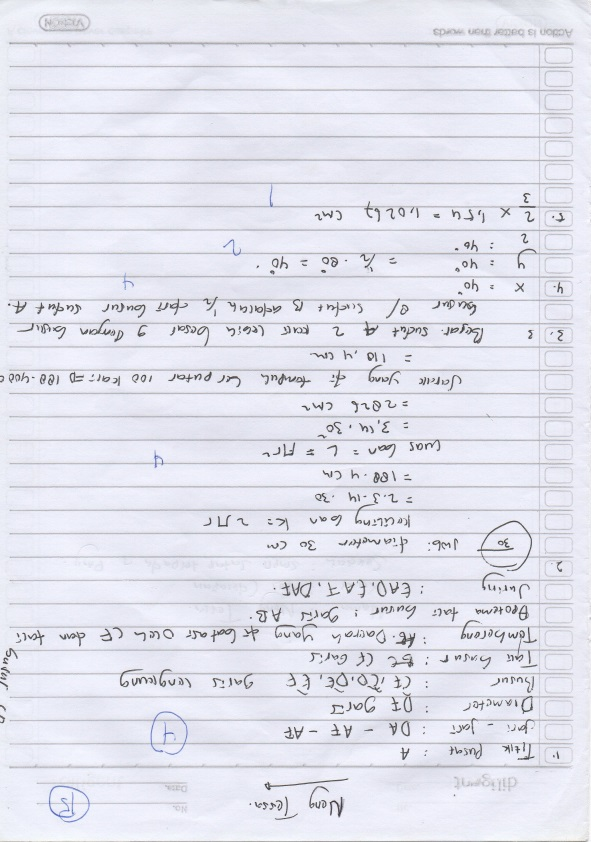 diligent
No.
Date.
B
Neng Tessa.
1. Titik Pusat : A
Jari - jari : DA - AE - AF
4
Diameter : DF garis
Busur : CF, CD, DE, EF garis lengkung
Tali busur : CF Garis
Tembereng : Daerah yang di batasi oleh CF dan tali
busur CF
Apotema tali busur : garis AB.
Juring : EAD, EAF, DAF.
2.
Jwb: diameter 30 cm
30
Keliling ban K = 2πr
= 2.3.14 .30
= 188.4 cm
Luas ban = L = πr²
4
= 3,14 . 30²
= 2826 cm²
Jarak yang di tempuh ber putar 100 kari => 188.400
= 118,4 cm
3. Besar sudut A 2 kari lebih besar dengan busur
busur / sudut B adalah 1/2 dari busur sudut A.
4
4. x = 40°
y = 40° = 1/2 . 80° = 40°.
2 = 40°
2
5. 2/3 x 1,54 = 1,0267 cm²
1
Action is better then words
VISION